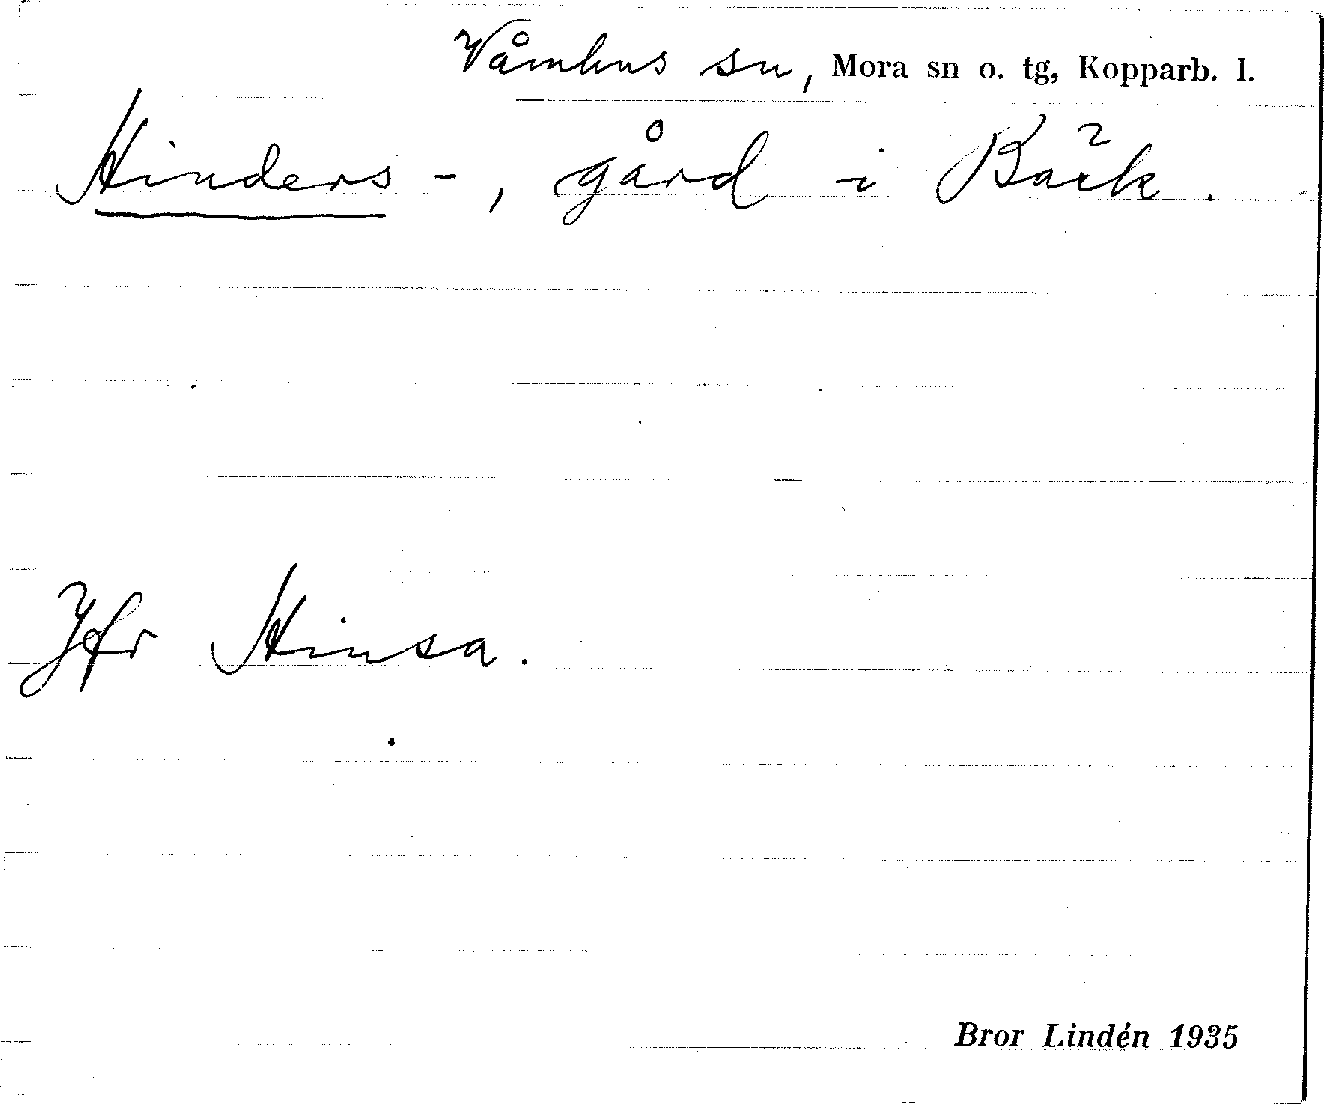 Våmhus sn, Mora sn o. tg, Kopparb. l.
Hinders-, gård i Bäck.
Jfr Hinsa.
Bror Lindén 1935